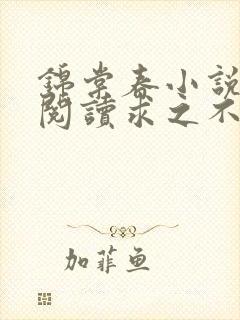 錦棠春小說
閱讀求之不
加菲魚